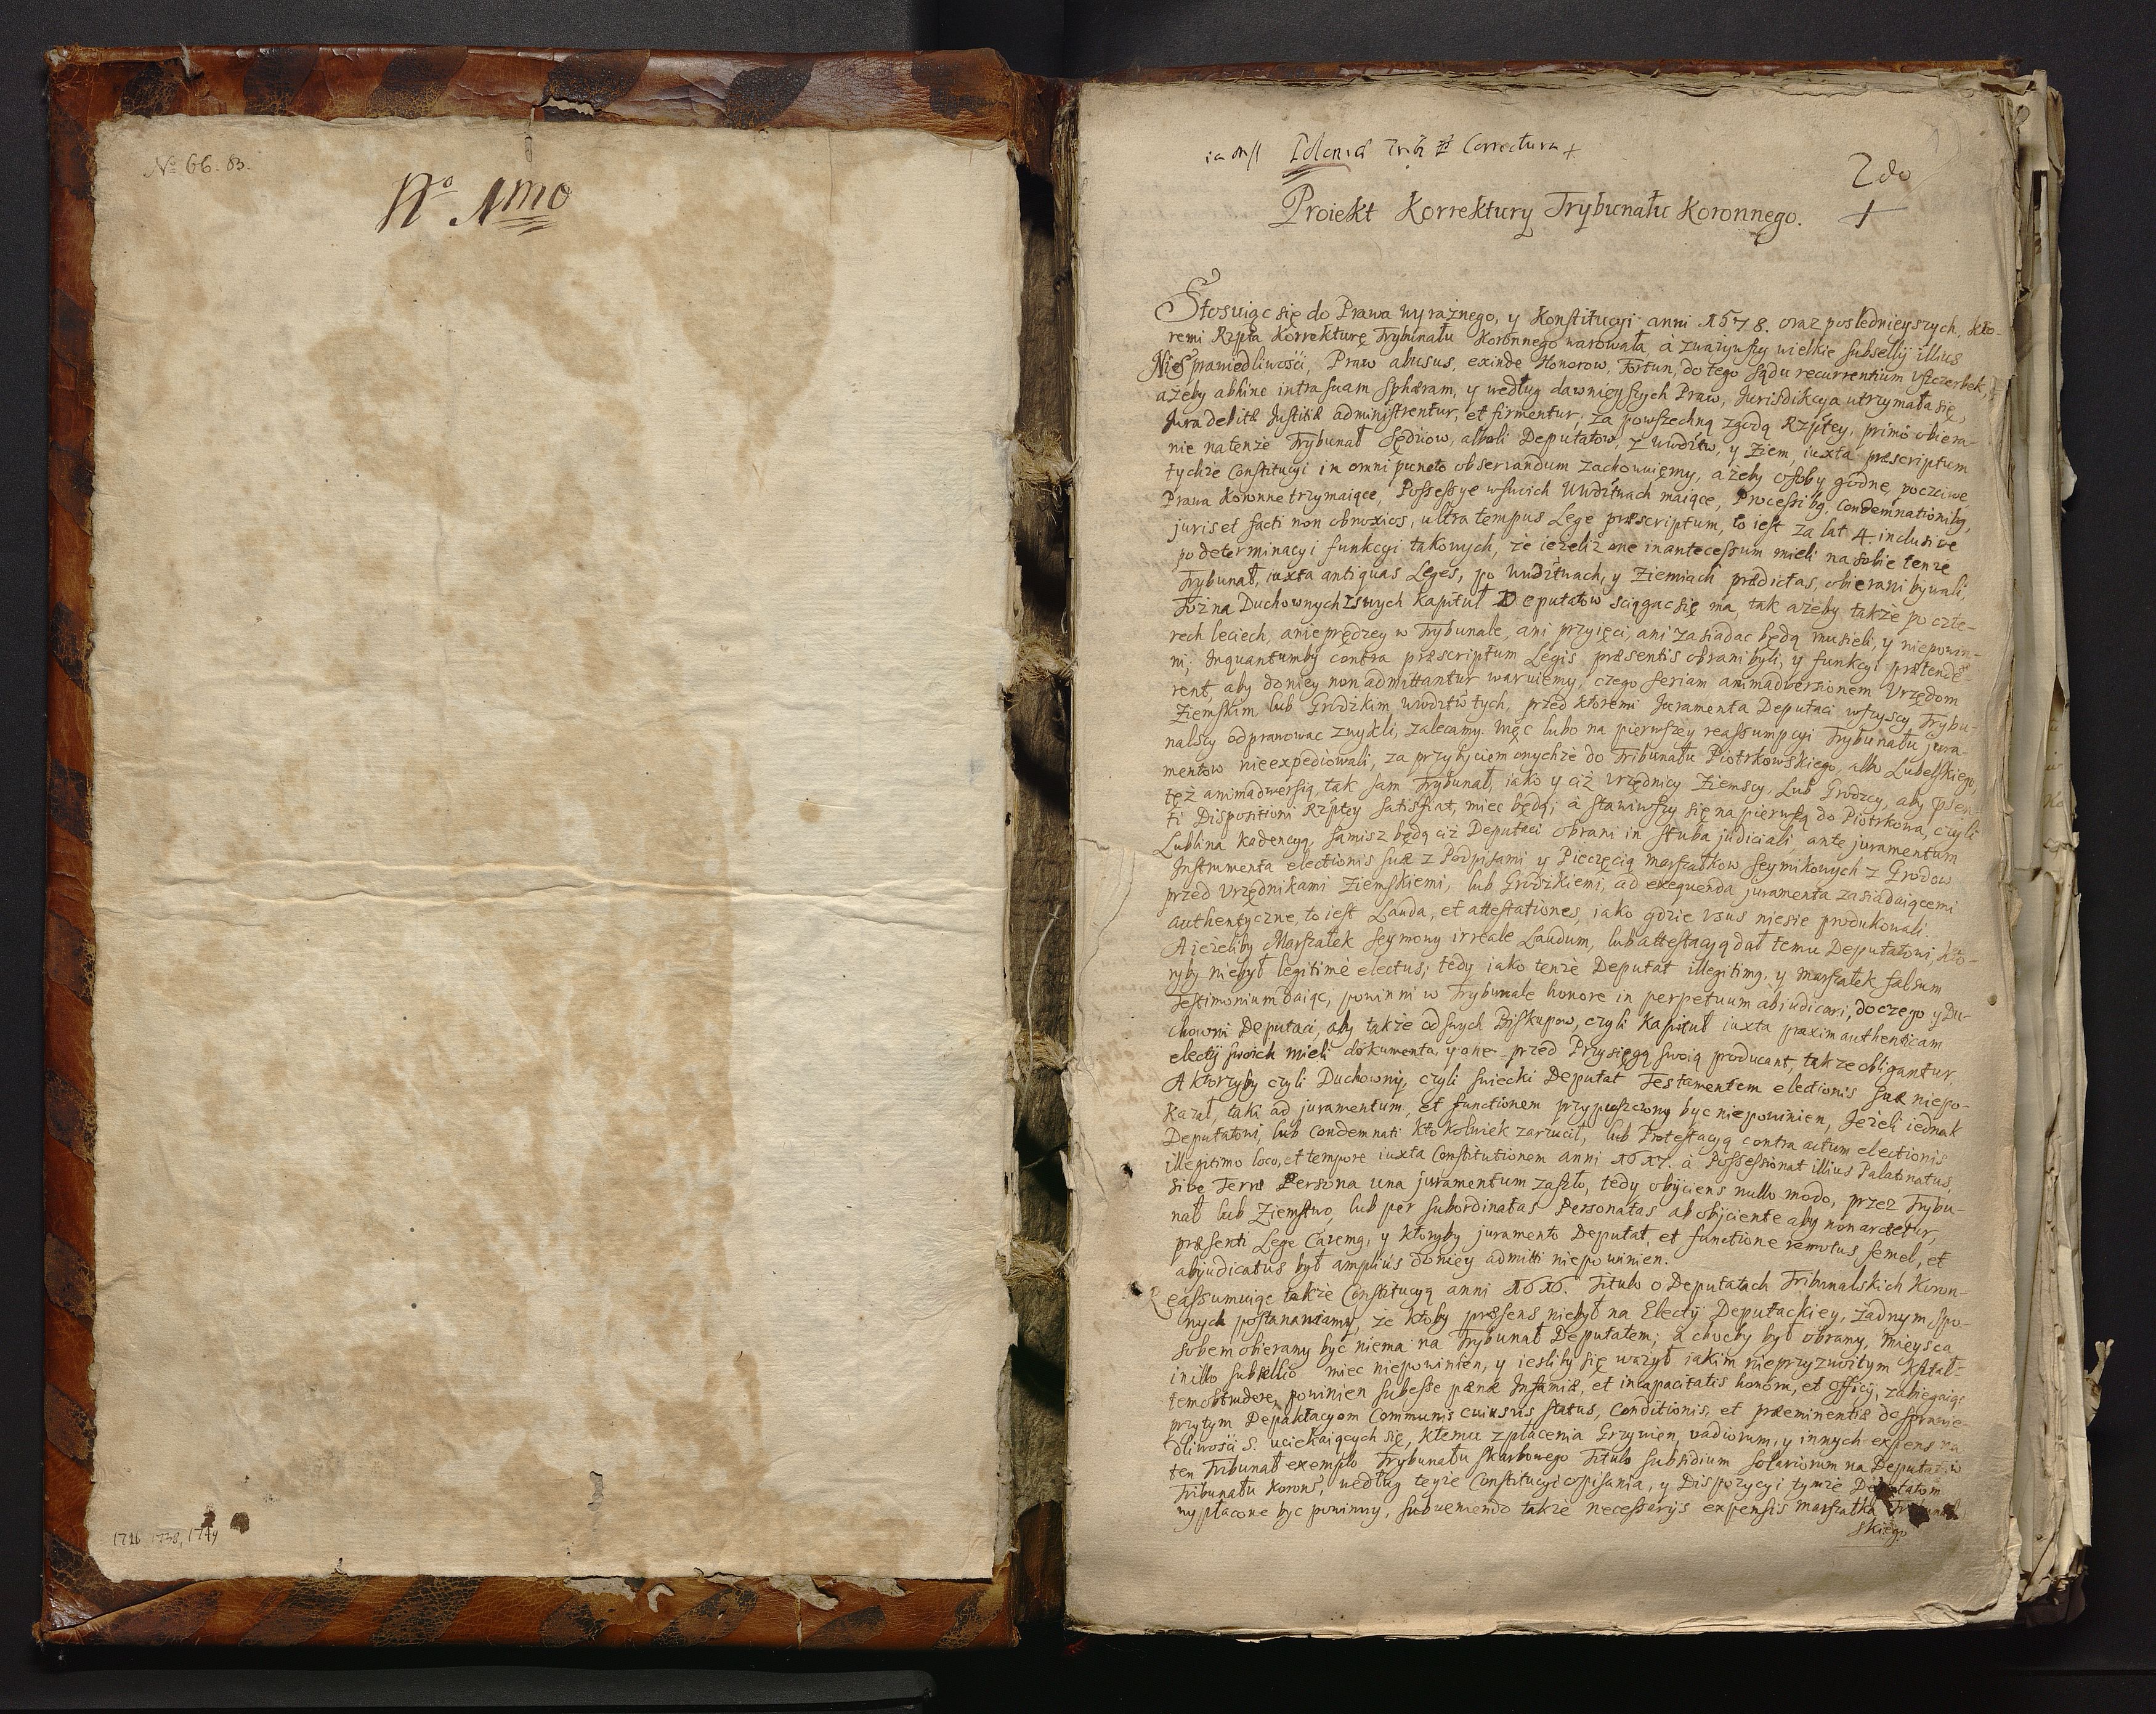 No 66. 83.
No 1mo
1726 1738, 1744
Correctura +
2do
+
Proiekt Korrektury Trybunału Koronnego.
Stosuiąc się do Prawa wyraźnego, y Konstitucyi anni 1578. oraz poslednieyszych, kto-
remi Rzpta Korrekturę Trybunału Koronnego warowała, à zważywszy wielkie subsellij illius
Niesprawiedliwości, Praw abusus, exinde Honorow, Fortun, do tego sądu recurrentium Uszczerbek,
ażeby abhinc intra suam Sphæram, y według dawnieyszych Praw, Jurisdikcya utrzymała się,
Jura debitæ Justitiæ administrentur, et firmentur, za powszechną zgodą Rzptey, primò obiera-
nie na tenże Trybunał Sędziow, alboli Deputatow, z Wwdztw, y Ziem, iuxta præscriptum
tychże Constitucyi in omni puncto observandum zachowuięmy, ażeby osoby godne, poczciwe
Prawa Koronne trzymaiące, Possessye w swoich Wwdztwach maiące, Processibg, Condemnationibg,
juris et facti non obnoxios, ultra tempus Lege præscriptum, to iest za lat 4. inclusive
po determinacyi funkcyi takowych, że ieżeliż one in antecessum mieli na sobie tenże
Trybunał, iuxta antiquas Leges, po Wwdztwach, y Ziemiach prædictas, obierani bywali,
Toż na Duchownych z swych Kapituł Deputatow sciągac się ma, tak ażeby także po czte-
rech leciech, anie prędzey w Trybunale, ani przyięci, ani zasiadac będą musieli, y niepowin-
ni; Inquantumby contra præscriptum Legis præsentis obrani byli, y funkcyi prætende-
rent, aby do niey non admittantur waruiemy, czego seriam animadversionem Urzędom
Ziemskim lub Grodzkim Wwdztw tych, przed ktoremi Juramenta Deputaci wszyscy Trybu-
nalscy odprawowac zwykli, zalecamy. Więc lubo na pierwszey reassumpcyi Trybunału jura-
mentow nieexpediowali, za przybyciem onychże do Tribunału Piotrkowskiego, albo Lubelskiego,
też animadwersią, tak sam Trybunał, iako y ciż Urzędnicy Ziemscy, Lub Grodzcy, aby psen-
ti Dispositioni Rzptey satisfiat, miec będą; à stawiwszy się na pierwszą do Piotrkowa, czyli
Lublina Kadencyą, samisz będą ciż Deputaci obrani in stuba judiciali, ante juramentum
Instrumenta electionis suæ z Podpisami y Pieczęcią marszałkow Seymikowych z Grodow
przed Urzędnikami Ziemskiemi, lub Grodzkiemi, ad exequenda juramenta zasiadaiącemi
authentyczne, to iest Lauda, et attestationes, iako gdzie usus niesie produkowali.
A jeżeliby Marszałek Seymowy irreale Laudum, lub attestacyą dał temu Deputatowi, kto-
ryby niebył legitimè electus; tedy iako tenże Deputat illegitimg, y marszałek falsum
Testimonium daiąc, powinni w Trybunale honore in perpetuum abjudicari, do czego y Du-
chowni Deputaci, aby także od swych Biskupow, czyli Kapituł iuxta praxim authenticam
electij swoich mieli dokumenta, y one przed Przysięgą swoią producant, także obligantur.
A ktoryby czyli Duchowny, czyli swiecki Deputat Testamentem electionis suæ niepo-
kazał, taki ad juramentum, et functionem przypuszczony byc niepowinien, Jeżeli iednak
Deputatowi, lub Condemnati ktokolwiek zarzucił, lub Protestacyą contra actum electionis
illegitimo loco, et tempore iuxta Constitutionem anni 1617. à Possessionat illius Palatinatus,
sive Terræ Persona una juramentum zaszło, tedy obijciens nullo modo, przez Trybu-
nał lub Ziemstwo, lub per subordinatas Personatas ab obijciente aby non arcetur,
præsenti Lege Cavemg, y ktoryby juramento Deputat, et functione remotus semel, et
abjudicatus był amplius do niey admitti niepowinien.
Reassumuiąc także Constitucyą anni 1616. Titulo o Deputatach Tribunalskich Koron-
nych postanawiamy, że ktoby præsens niebył na Electij Deputackiey, żadnym spo-
sobem obierany byc niema na Trybunał Deputatem; à chocby był obrany, mieysca
in illo subsellio miec niepowinien, y iesliby się ważył iakim nieprzyzwoitym Kształ-
tem obtrudere, powinien subesse pænæ Infamiæ, et incapacitatis honorū, et officij, zabiegaiąc
przytym Depaktacyom Communis cuiusvis status, Conditionis, et præeminentiæ do Sprawie-
dliwości S. uciekaiących się, ktemu z płacenia Grzywien, vadiorum, y innych expens na
ten Tribunał exemplo Trybunału Skarbowego Titulo subsidium solariorum na Deputatow
Tribunału Koronn, według teyże Constitucyi opisania, y Dispozycyi tymże Deputatom
wypłacone byc powinny, subveniendo także necessarijs expensis marszałka Tribunal
skiego